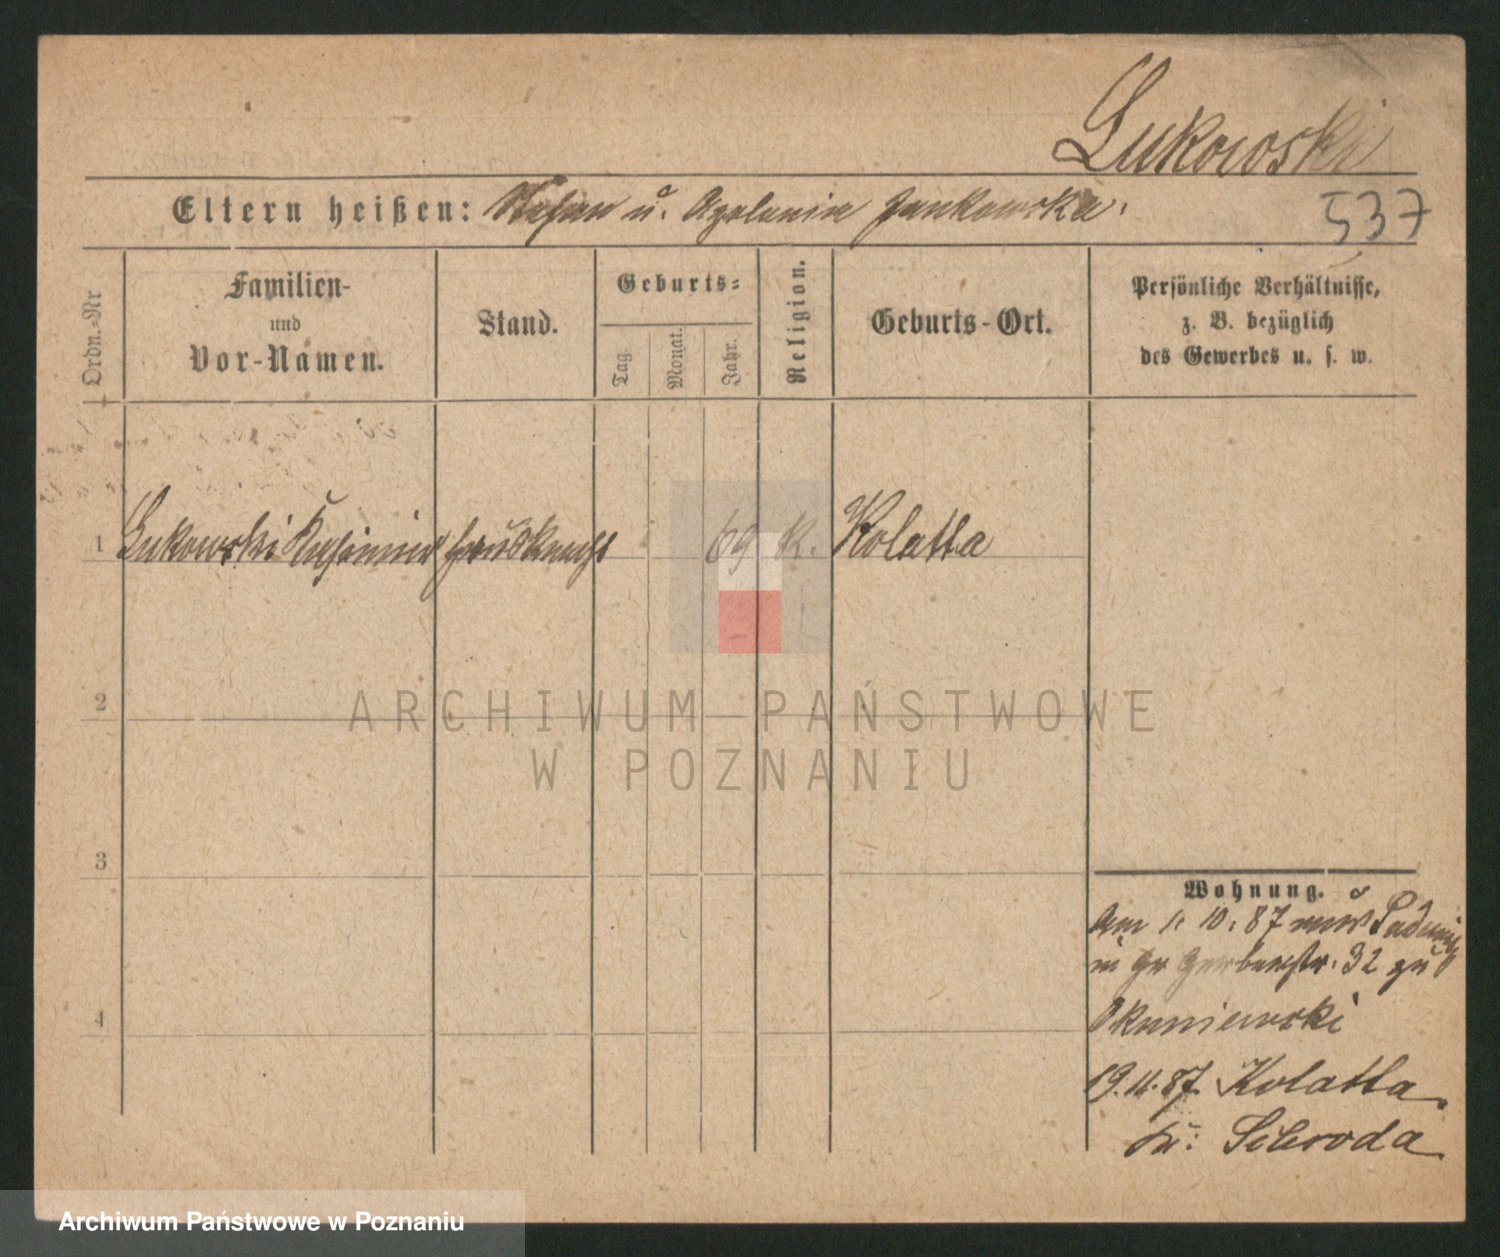 Lukowski
Eltern heißen: Stefan u. Apolonia Jankowska.
537
Ordn.-Nr
Familien-
und
Vor-Namen.
Stand.
Geburts-
Tag.
Monat.
Jahr.
Religion.
Geburts-Ort.
Persönliche Verhältnisse,
z. B. bezüglich
des Gewerbes u. s. w.
1 Lukowski Kasimir Hausknecht 69 K. Kolatta
2
3
4
Wohnung.
Am 1. 10. 87 aus
in Gr Gerberstr. 32 zu
Okuniewski
19.11.87. Kolatta
Kr: Schroda
ARCHIWUM PAŃSTWOWE
W POZNANIU
Archiwum Państwowe w Poznaniu